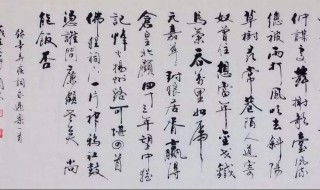 仲謀處舞榭歌臺風流
總被雨打風吹去斜陽
草樹尋常巷陌人道寄
奴曾住想當年金戈鐵
馬氣吞萬里如虎
元嘉草草封狼居胥贏得
倉皇北顧四十三年望中猶
記烽火揚州路可堪回首
佛狸祠下一片神鴉社鼓
憑誰問廉頗老矣尚
能飯否
辛弃疾詞永遇樂一首